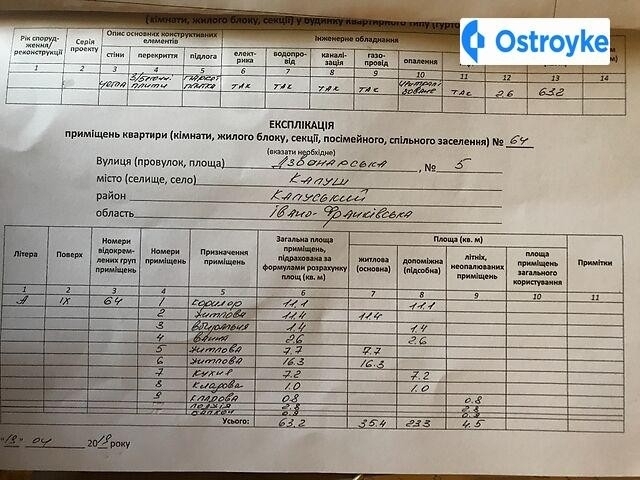 (кімнати, жилого блоку, секції) у будинку квартирного типу
Ostroyke
Рік споруд-ження/реконструкції Серія проекту Опис основних конструктивних елементів Інженерне обладнання
стіни перекриття підлога елект-рика водопро-від каналі-зація газо-провід опалення
1 2 3 4 5 6 7 8 9 10 11 12 13 14
цегла плити так так так так так 2.6 63.2
ЕКСПЛІКАЦІЯ
приміщень квартири (кімнати, жилого блоку, секції, посімейного, спільного заселення) № 64
(вказати необхідне)
Вулиця (провулок, площа) Дзвонарська, № 5
місто (селище, село) Калуш
район Калуський
область Івано-Франківська
Літера Поверх Номери відокрем-лених груп приміщень Номери приміщень Призначення приміщень Загальна площа приміщень, підрахована за формулами розрахунку площ (кв. м) Площа (кв. м) Примітки
житлова (основна) допоміжна (підсобна) літніх, неопалюваних приміщень площа приміщень загального користування
1 2 3 4 5 6 7 8 9 10 11
А ІХ 64 1 коридор 11.1 11.1
2 житлова 11.4 11.4
3 вбиральня 1.4 1.4
4 ванна 2.6 2.6
5 житлова 7.7 7.7
6 житлова 16.3 16.3
7 кухня 7.2 7.2
8 кладова 1.0 1.0
9 кладова 0.8 0.8
лоджія 2.8 2.8
балкон 0.9 0.9
Усього: 63.2 35.4 23.3 4.5
"18" 04 2018 року